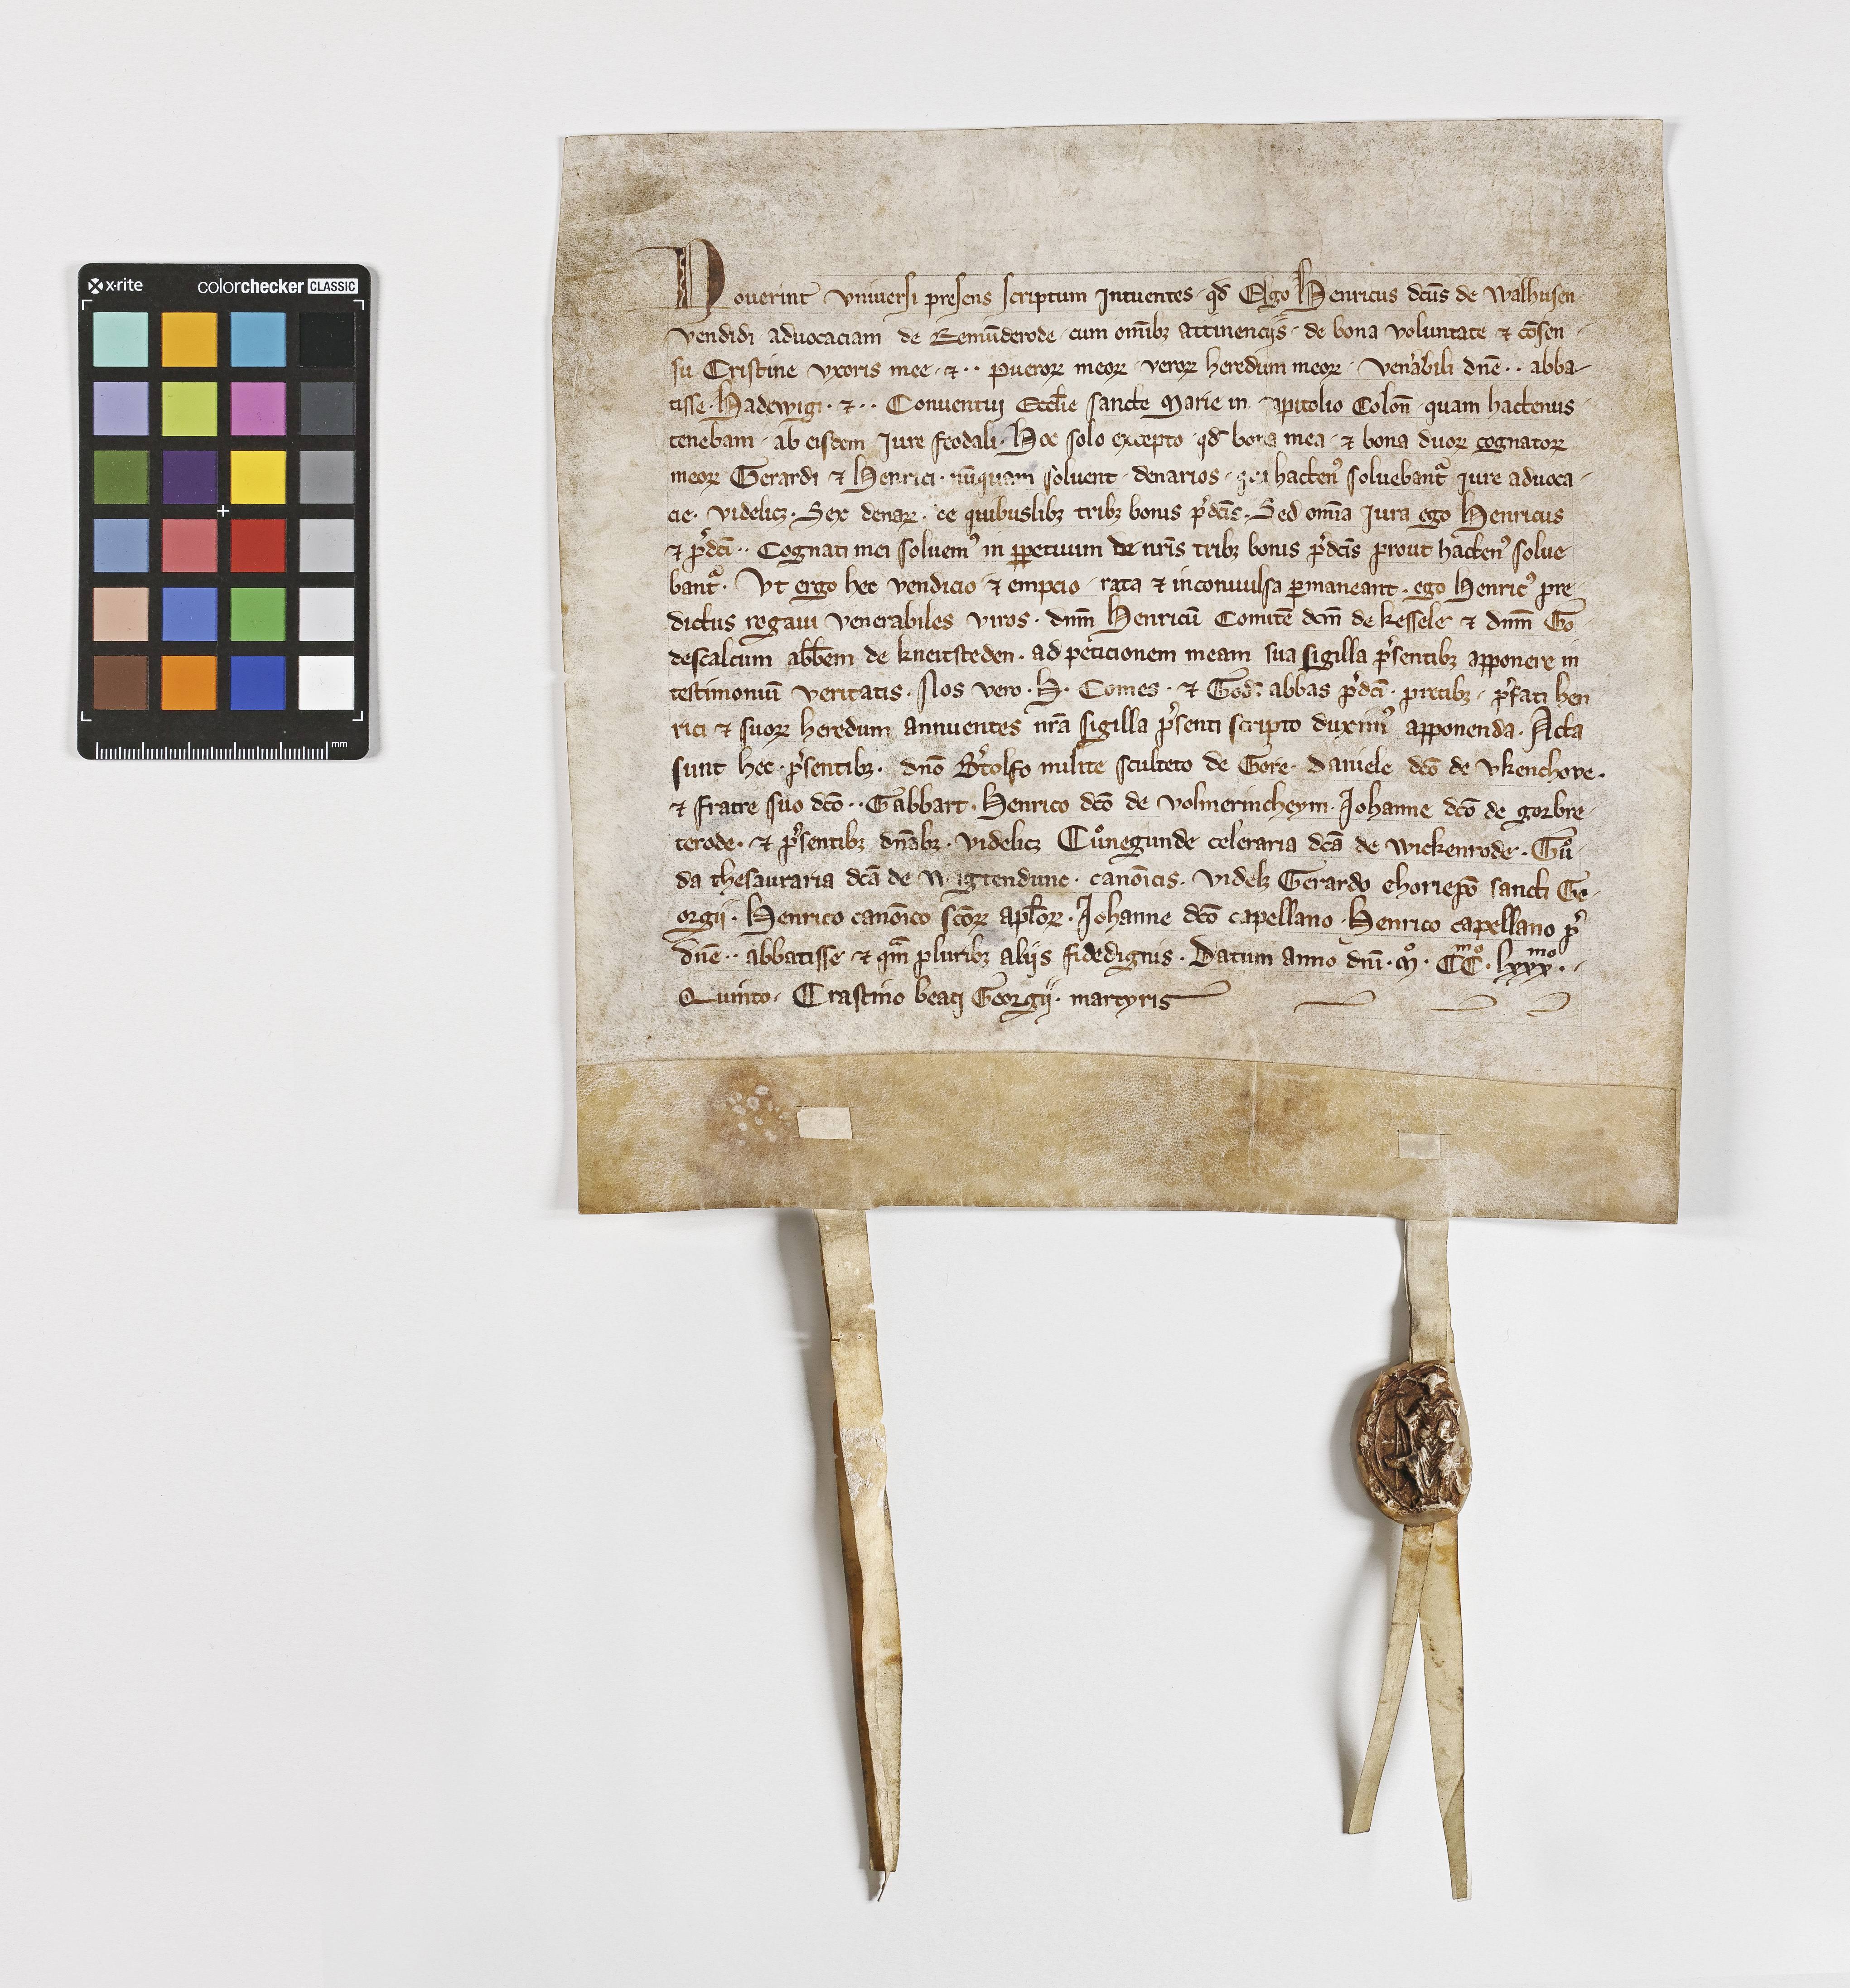 x-rite colorchecker CLASSIC
mm
Nouerint vniuersi presens scriptum Intuentes · qđ Ego Henricus dc̄us de walhusen
vendidi aduocaciam de Remūderode · cum om̄ibꝫ attinencijs · de bona voluntate ⁊ cōsen
su Cristine vxoris mee · ⁊ ·· pueroꝝ meoꝝ · veroꝝ heredum meoꝝ · ven̄abili dn̄e ·· abba-
tisse · Hadewigi · ⁊ ·· Conuentui Eccl̄ie sancte Marie in apitolio Colon̄ · quam hactenus
tenebam · ab eisdem Jure feodali · Hoc solo excepto · qđ bona mea · ⁊ bona duoꝝ cognatoꝝ
meoꝝ Gerardi ⁊ Henrici · nūquam soluent · denarios · hactenꝰ soluebantᷓ Jure aduoca
cie · videlicꝫ · Sex denaꝝ · de quibuslibꝫ tribꝫ bonis p̄dc̄is · Sed om̄ia Jura ego Henricus
⁊ p̄dc̄i ·· Cognati mei soluemꝰ in ꝑpetuum de nr̄is tribꝫ bonis p̄dc̄is prout hactenꝰ solue
bantᷓ · Vt ergo hec vendicio · ⁊ empcio · rata ⁊ inconuulsa ꝑmaneant · ego Henricꝰ pre
dictus rogaui venerabiles viros · dn̄m Henricū Comitē dc̄m de kessele ⁊ dn̄m Go
descalcum abb̄em de kneitsteden · ad peticionem meam sua sigilla p̄sentibꝫ apponere in
testimoniū veritatis · Nos vero · H · Comes · ⁊ God · abbas p̄dc̄i · p̄cibꝫ · p̄fati hen
rici ⁊ suoꝝ heredum annuentes nr̄a sigilla p̄senti scripto duximꝰ apponenda · Acta
sunt hec · p̄sentibꝫ · dn̄o B̄tolfo milite sculteto de Gore · Daniele dc̄o de vkenchoue ·
⁊ fratre suo dc̄o ·· Gabbart · Henrico dc̄o de volmerincheym · Johanne dc̄o de gorbre
terode · ⁊ p̄sentibꝫ dn̄abꝫ · videlicꝫ Cuͦnegunde celeraria dc̄a de wickenrode · Guͦ
da thesauraria dc̄a de · canōicis · videlꝫ Gerardo choriep̄o sancti Ge-
orgij · Henrico canōico sc̄oꝝ apl̄oꝝ · Johanne dc̄o capellano · Henrico capellano p̄
dn̄e ·· abbatisse ⁊ qᷓm pluribꝫ alijs fidedignis · Datum anno dn̄i · Mͦ · CCᵐᵒ · lxxxᵐᵒ ·
Quinto · Crastino beati Georgij · martyris